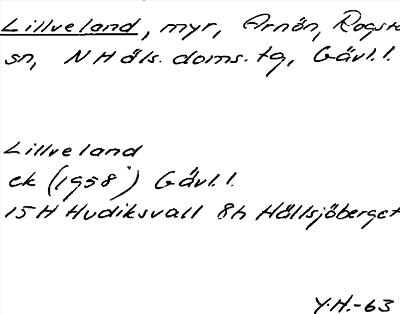 Lillveland, myr, Arnön, Rogsta
sn, N Häls. doms. tg, Gävl. l.
Lillveland
ek (1958) Gävl. l.
15H Hudiksvall 8h Hällsjöberget
Y.H.-63